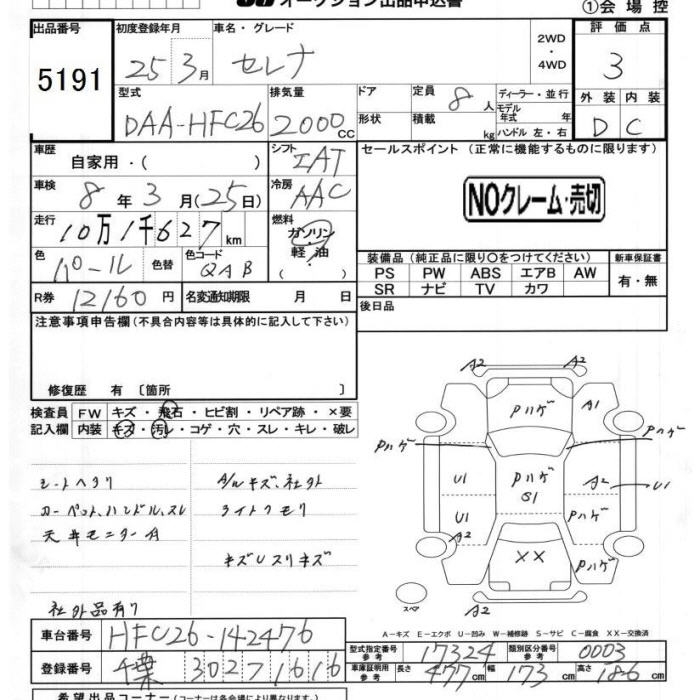 オークション出品申込書
①会場控
出品番号 初度登録年月 車名・グレード 2WD・4WD 評価点
5191 25 3月 セレナ 3
型式 排気量 ドア 定員 8人 ディーラー・並行 外装 内装
DAA-HFC26 2000cc 形状 積載 kg モデル年式 年 ハンドル 左・右 D C
車歴 自家用・( ) シフト IAT セールスポイント (正常に機能するものに限ります)
車検 8年3月(25日) 冷房 AAC NOクレーム・売切
走行 10万1千627km 燃料 ガソリン・軽油・( )
色 パール 色替 色コード QAB 装備品 (純正品に限り〇をつけてください) 新車保証書
PS PW ABS エアB AW 有・無
SR ナビ TV カワ
R券 12160円 名変通知期限 月 日 後日品
注意事項申告欄 (不具合内容等は具体的に記入して下さい)
修復歴 有 [箇所 ]
検査員記入欄 FW キズ・飛石・ヒビ割・リペア跡・×要
内装 キズ・汚レ・コゲ・穴・スレ・キレ・破レ
シートヘタリ A/Wキズ、社外
カーペット、ハンドル、スレ ライトクモリ
天井モニター付
キズUスリキズ
社外品有り
A2 A2
Pハゲ A1
Pハゲ Pハゲ
U1 Pハゲ A2 U1
S1
U1 Pハゲ
XX Pハゲ
スペア A2
A-キズ E-エクボ U-凹み W-補修跡 S-サビ C-腐食 XX-交換済
車台番号 HFC26-142476
型式指定番号 参考 17324 類別区分番号 参考 0003
登録番号 千葉 302 7 1616
車庫証明用 参考 長さ 477cm 幅 173cm 高さ 186cm
希望出品コーナー (コーナーは各会場により異なります。)